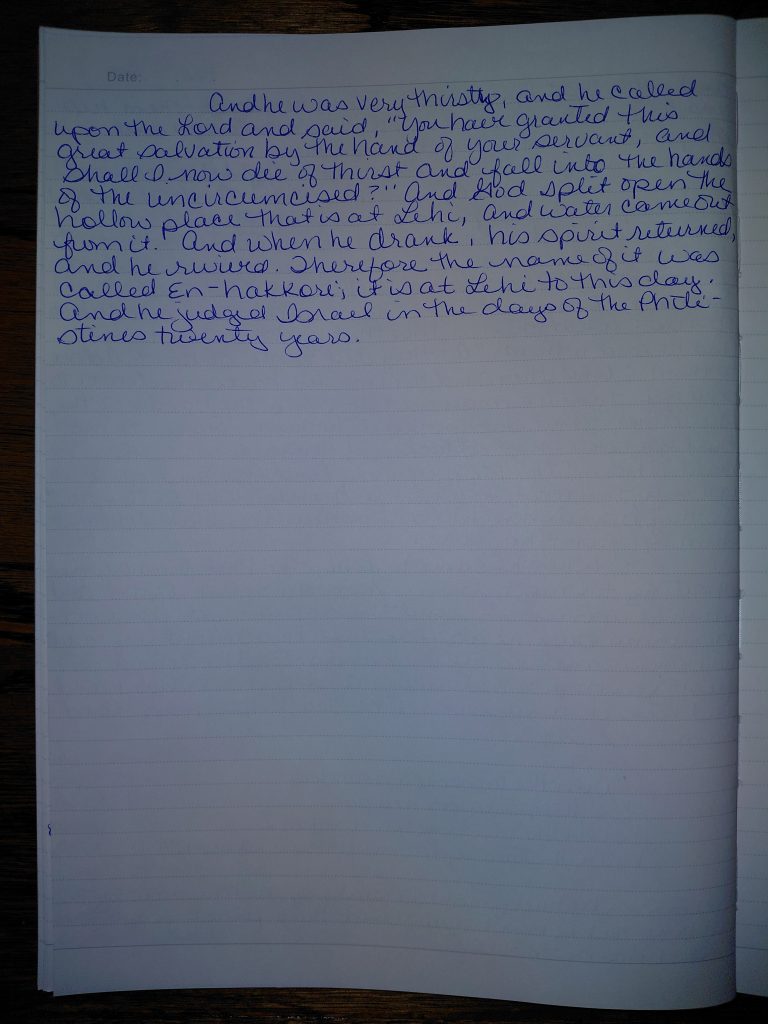 Date:
And he was very thirsty, and he called
upon the Lord and said, "You have granted this
great salvation by the hand of your servant, and
shall I now die of thirst and fall into the hands
of the uncircumcised?" And God split open the
hollow place that is at Lehi, and water came out
from it. And when he drank, his spirit returned,
and he revived. Therefore the name of it was
called En-hakkore; it is at Lehi to this day.
And he judged Israel in the days of the Phili-
stines twenty years.